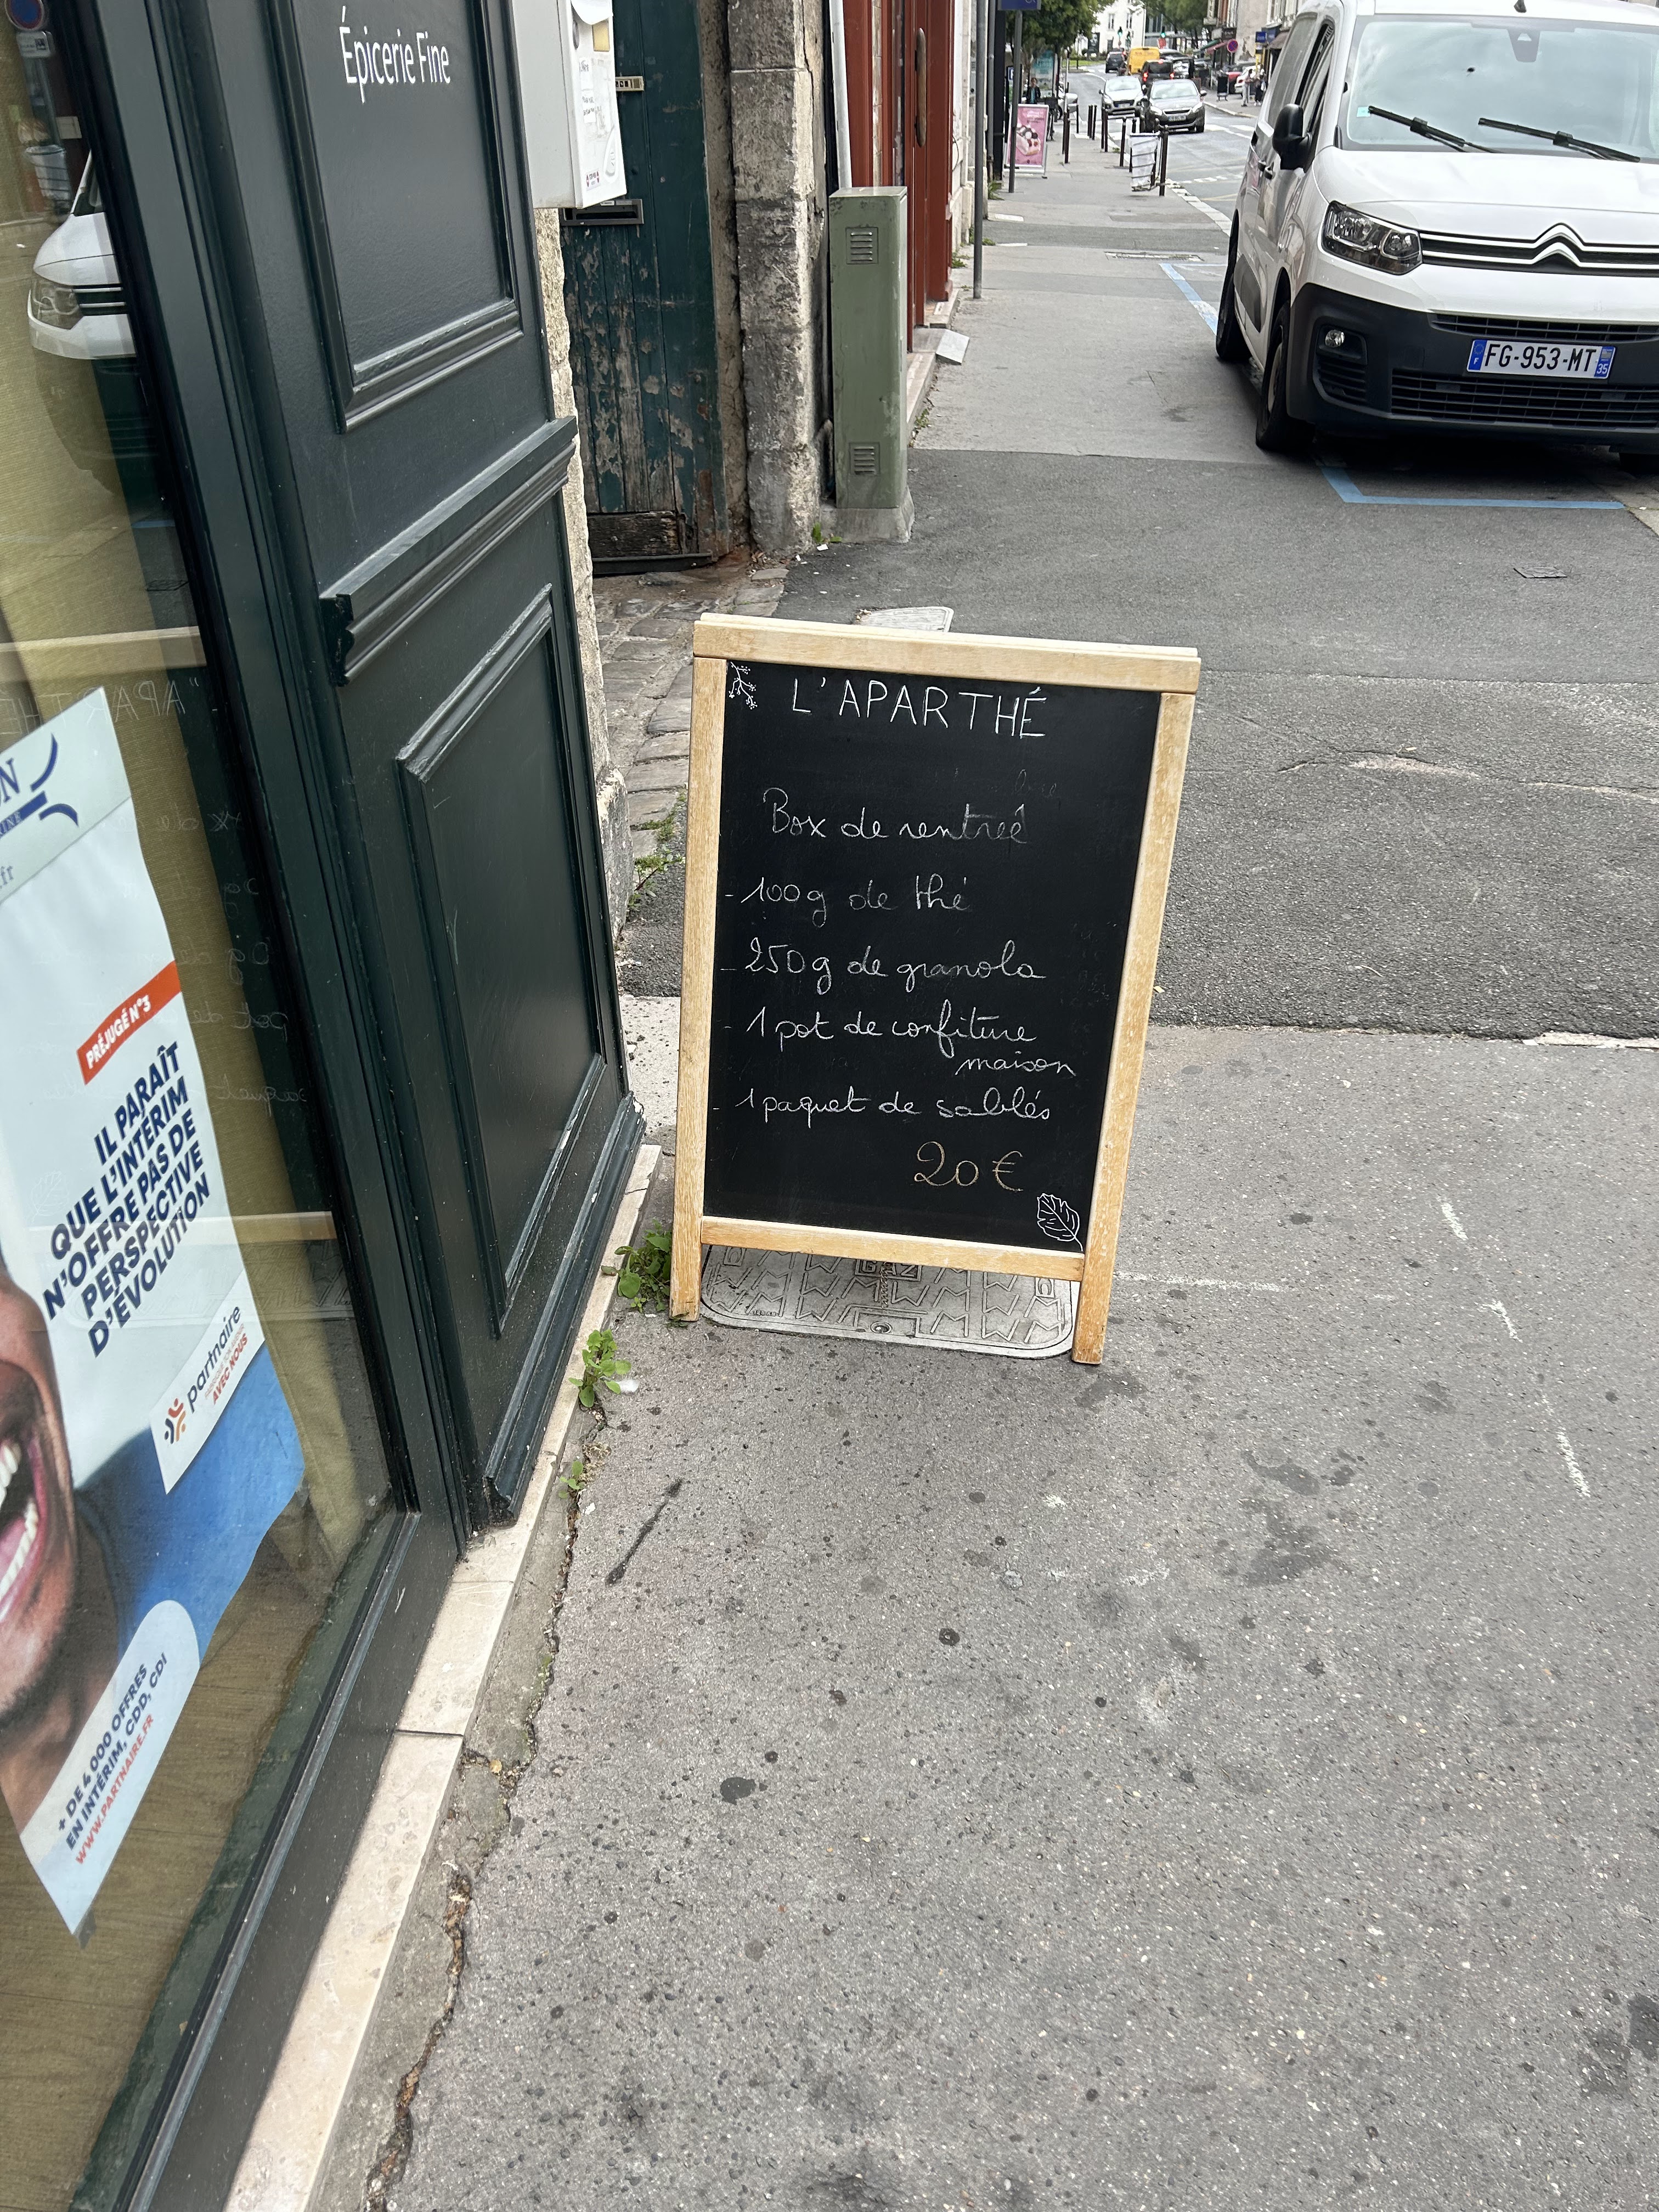 Épicerie Fine
FG-953-MT
35
F
L'APARTHÉ
Box de rentrée
- 100g de thé
- 250g de granola
- 1 pot de confiture
maison
- 1 paquet de sablés
20 €
GAZ
.fr
PRÉJUGÉ N°3
IL PARAÎT
QUE L'INTÉRIM
N'OFFRE PAS DE
PERSPECTIVE
D'ÉVOLUTION
partnaire
AVEC NOUS
+ DE 4 000 OFFRES
EN INTÉRIM, CDD, CDI
WWW.PARTNAIRE.FR